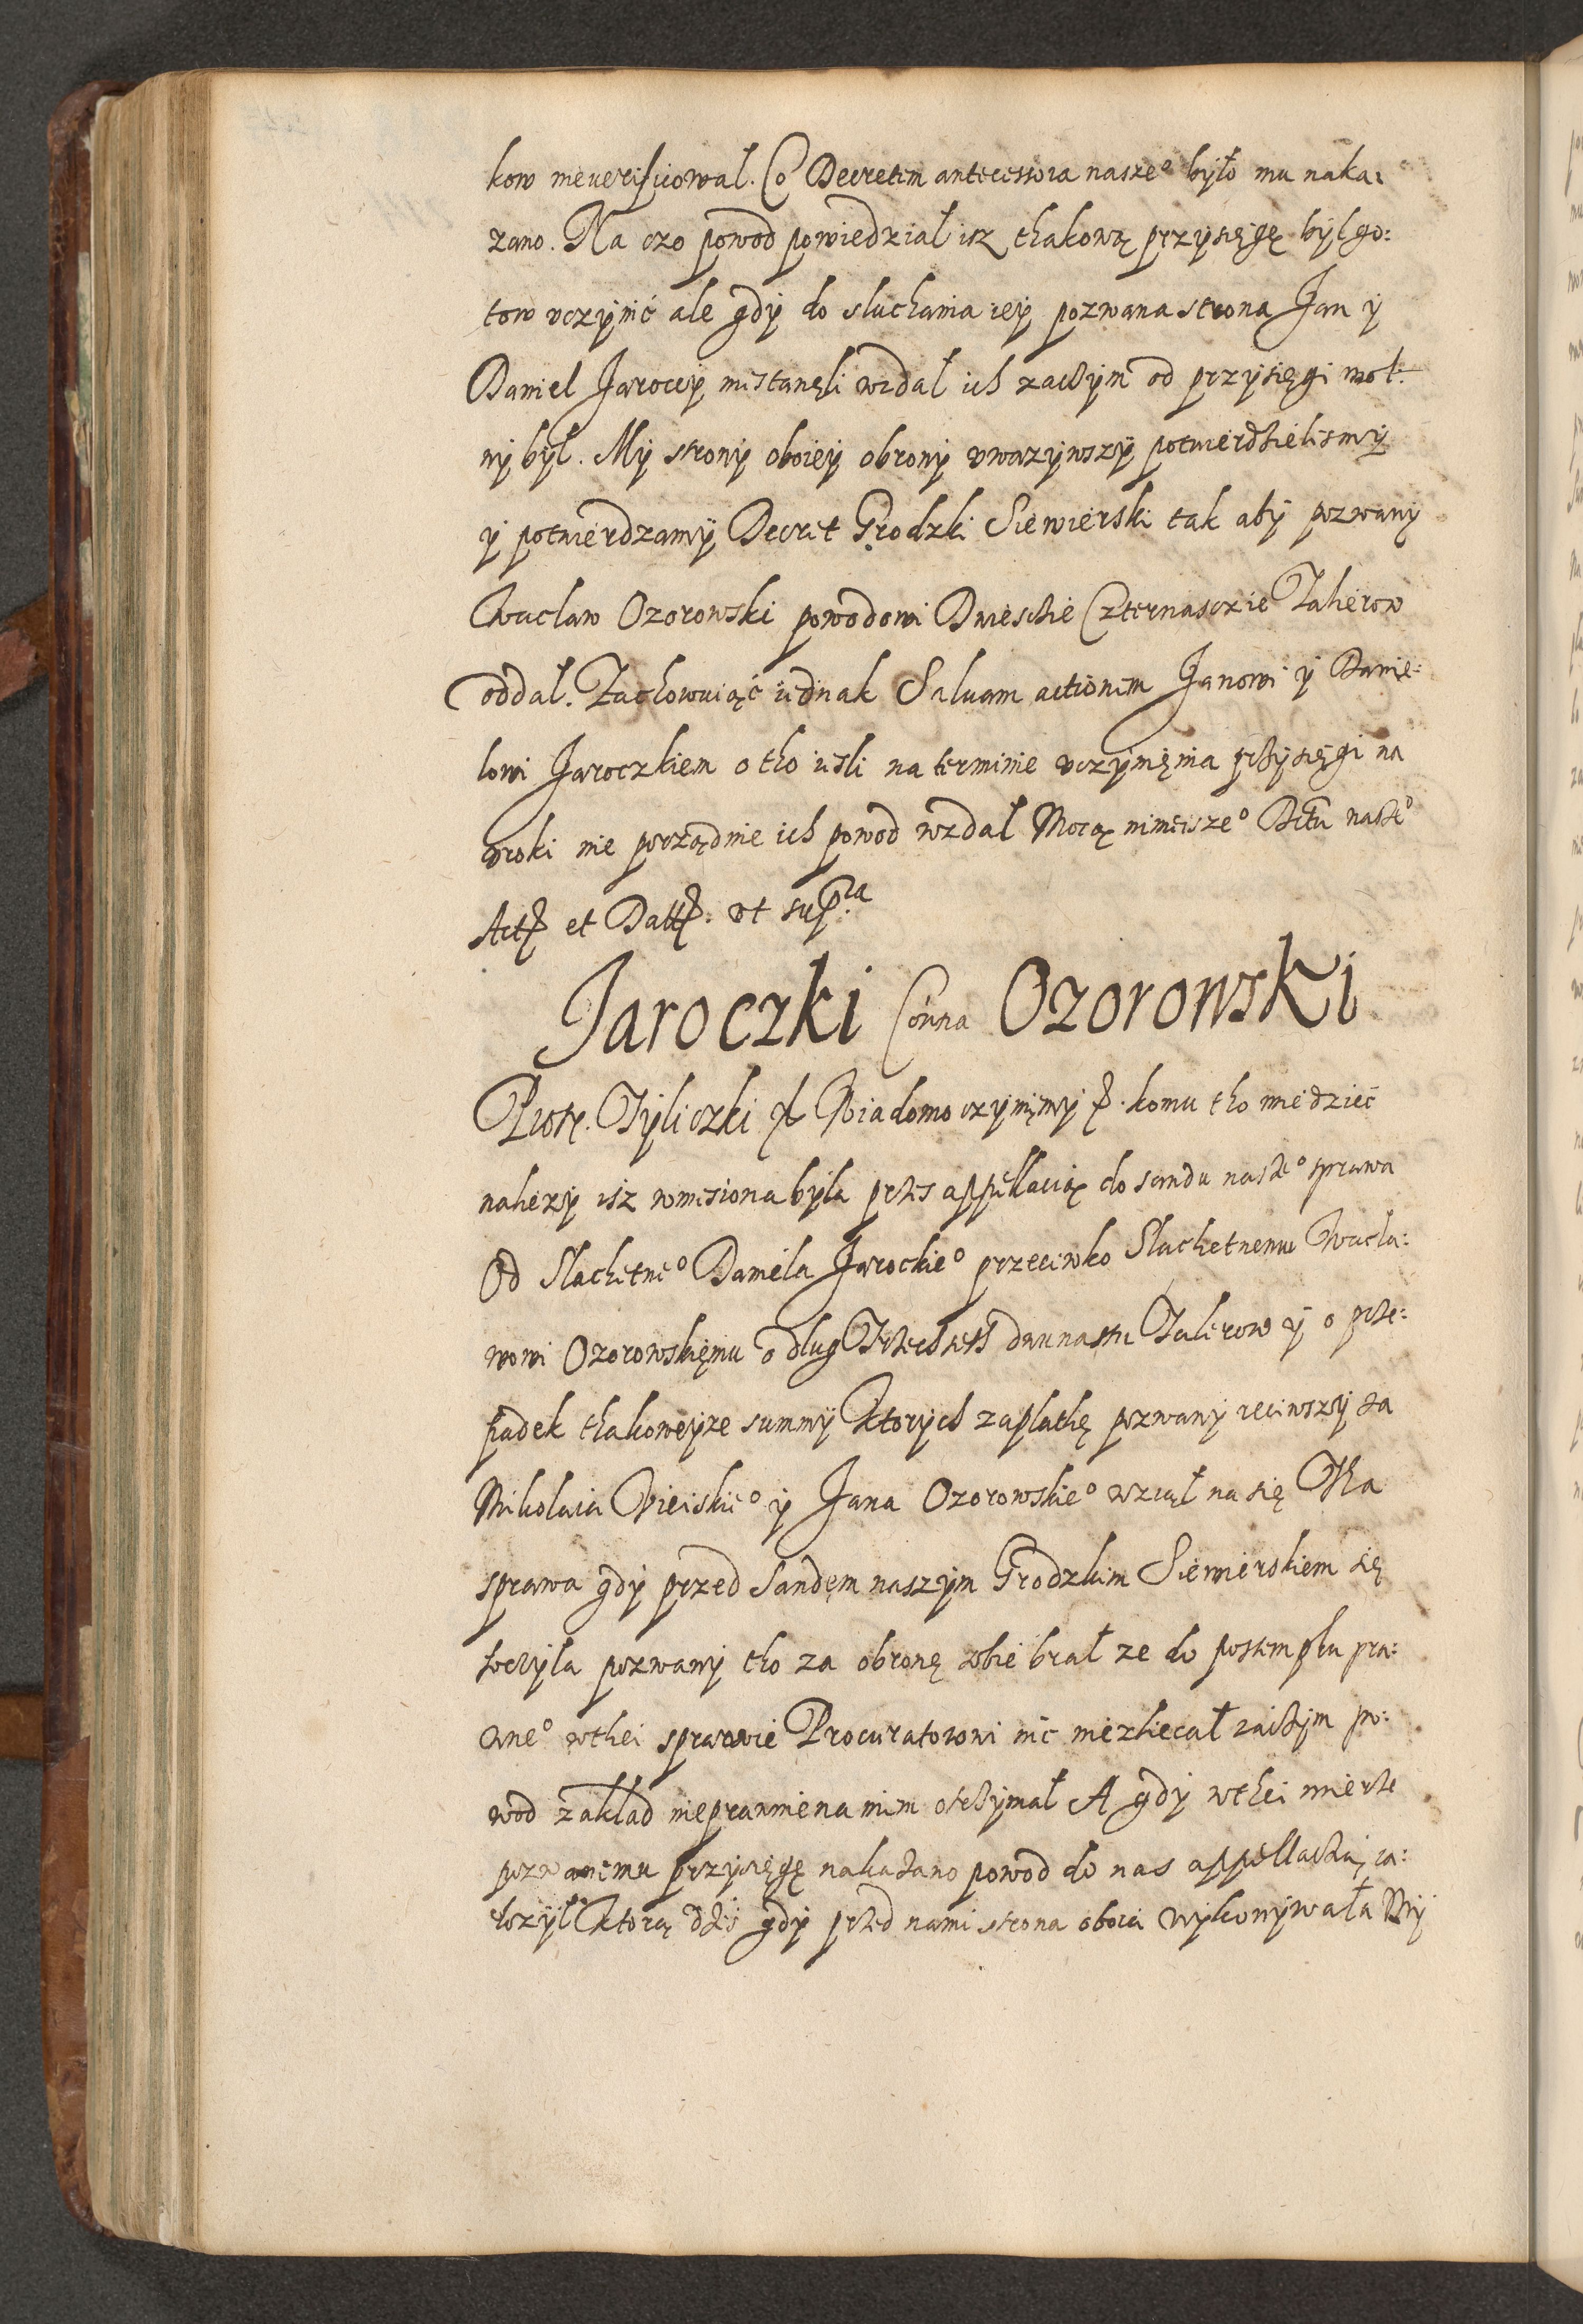 kow nieuerificował. Co Decretem antecessora nasze° było mu naka:
zano. Na czo powod powiedział isz thakową przysięgę był go:
tow vczynić ale gdy do słuchania iey pozwana strona Jan y
Daniel Jaroccy niestanęli wzdał ich zaczym od przysięgi wol:
ny był. My strony oboiey obrony vwazywszy potwierdzielismy
y potwierdzamy Decret Grodzki Siewierski tak aby pozwany
Wacław Ozorowski powodowi Dwieście Czternascie Talierow
oddał. Zachowuiąć iednak Saluam actionem Janowi y Danie:
lowi Jaroczkiem o tho iesli na terminie vczynięnia przysięgi na
wroki nie porządnie ich powod wzdał Mocą ninieisze° Dctu nasze°
Act et Datt. vt supra
Jaroczki Contra Ozorowski
Piotr Tyliczki Wiadomo czynięmy komu tho wiedzieć
nalezy isz wniesiona była przes appellacią do sandu nasze° sprawa
Od Slachetne° Daniela Jarockie° przeciwko Slachetnemu Wacła:
wowi Ozorowskięmu o dlug Trzechseth dwunastu Talerow y o prze:
padek thakoweyze summy Ktorych zapłathę pozwany ręciwszy za
Mikołaia Bieiskie° y Jana Ozorowskie° wziął na się Tha
sprawa gdy przed Sandęm naszym Grodzkim Siewierskiem się
toczyła pozwany tho za obronę sobie brał ze do postempku pra:
wne° wthei sprawie Procuratorowi nic niezliecał zaczym po:
wod zakład nieprawnie na nim otrzymał A gdy wthei mierze
pozwanemu przysięgę nakazano powod do nas appellacią za:
łozył Ktorą dziś gdy przed nami strona oboia wykonywała My